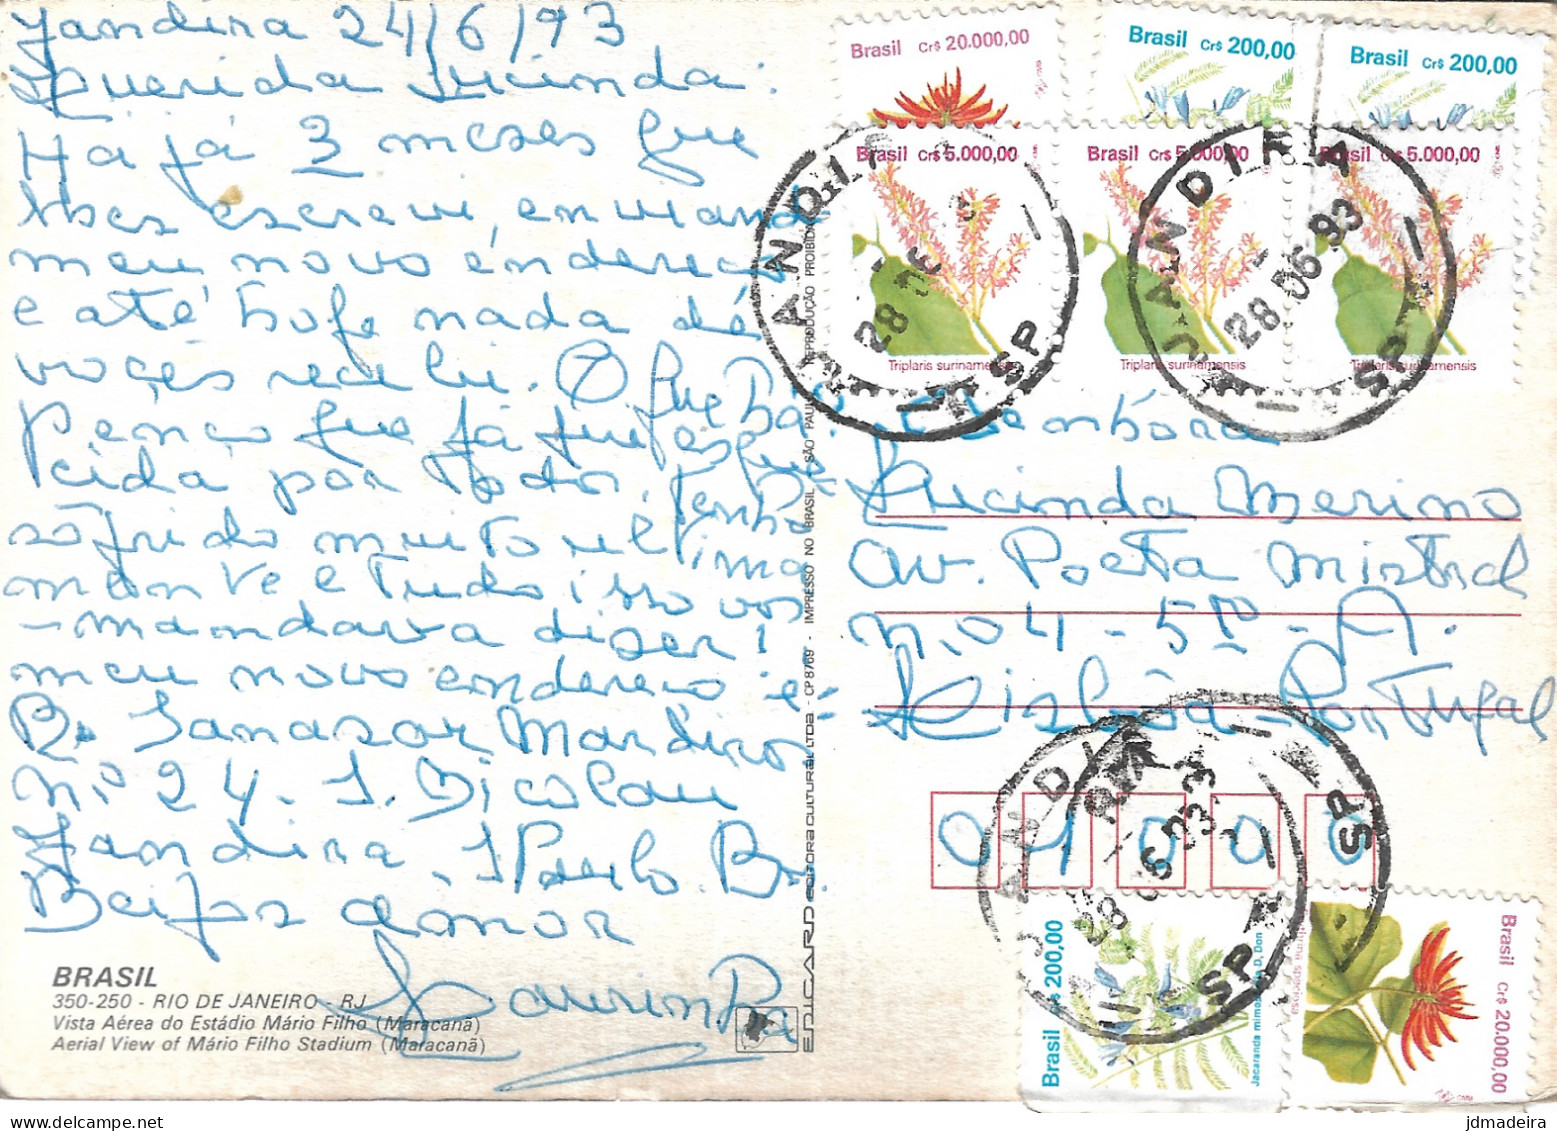 Jandira 24/6/93
Querida Lucinda:
Há já 3 meses que
lhes escrevi, enviando
meu novo endereço
e até hoje nada de
voçes recebi. O que há?
Penço que já fui esque
cida por todos. Tenho
sofrido muito ultima
mente e tudo isso vos
mandava dizer!
meu novo endereço é:
R. Sanazar Mardiros
n.º 24. J. Nicolau
Jandira, S Paulo. Br.
Beijos da
Laurinda
BRASIL
350-250 - RIO DE JANEIRO - RJ
Vista Aérea do Estádio Mário Filho (Maracanã)
Aerial View of Mário Filho Stadium (Maracanã)
EDICARD EDITORA CULTURAL LTDA - CP 8769 - IMPRESSO NO BRASIL SÃO PAULO REPRODUÇÃO PROIBIDA
Brasil Cr$ 20.000,00
Brasil Cr$ 200,00
Brasil Cr$ 200,00
Brasil Cr$ 5.000,00
Triplaris surinamensis
Brasil Cr$ 5.000,00
Triplaris surinamensis
Brasil Cr$ 5.000,00
Triplaris surinamensis
JANDIRA SP
28 06
JANDIRA SP
28 06 93
Lucinda Merino
Av. Poeta Mistral
n.04 - 5º - A.
Lisbôa - Portugal
01000
JANDIRA SP
28 06 93
Brasil Cr$ 200,00
Jacaranda mimosifolia D. Don
Brasil Cr$ 20.000,00
delcampe.net
jdmadeira